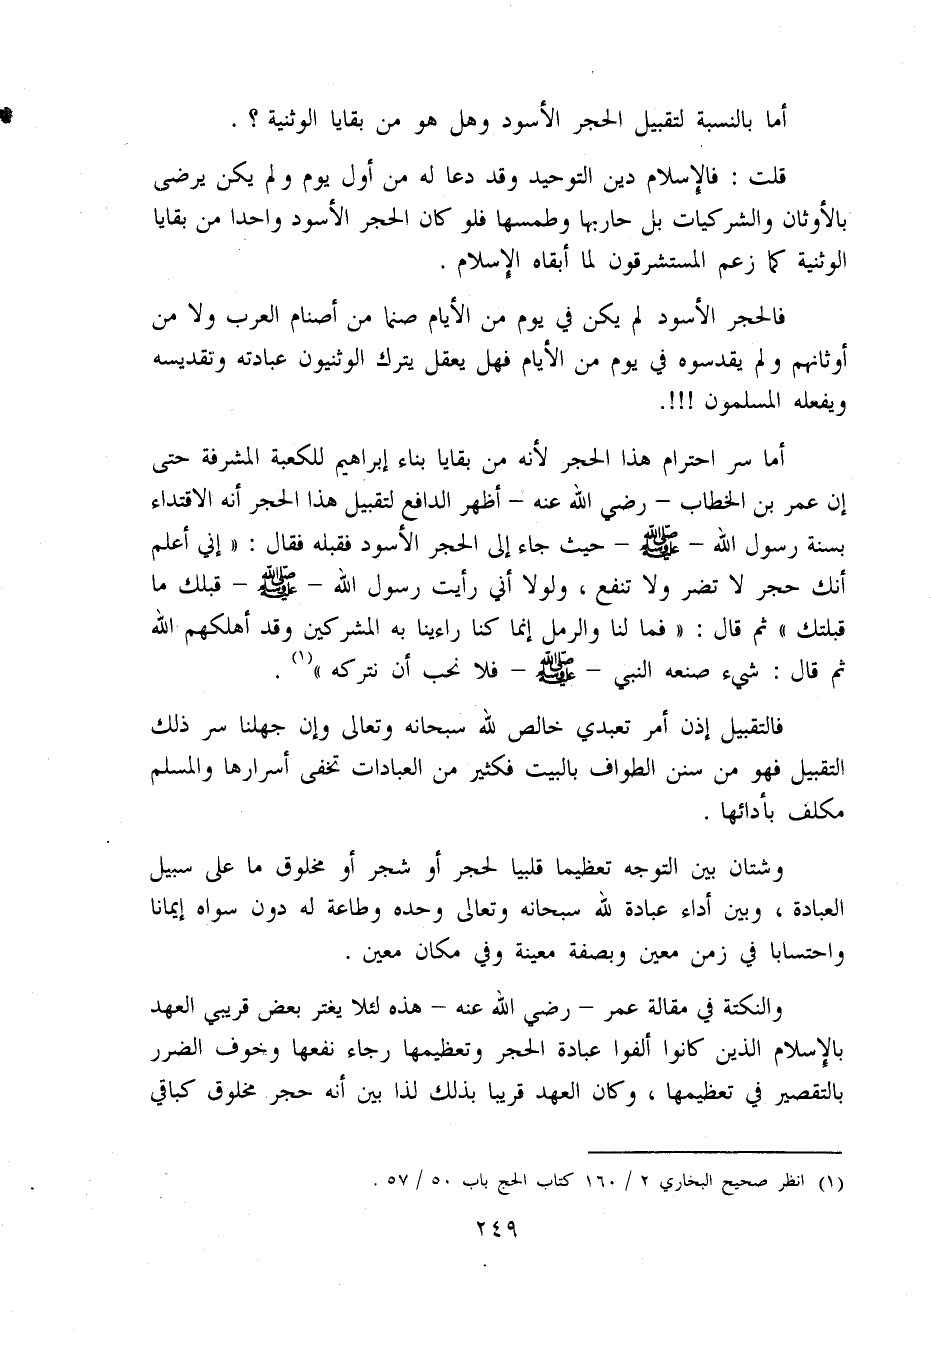 أما بالنسبة لتقبيل الحجر الأسود وهل هو من بقايا الوثنية ؟ .
قلت : فالإسلام دين التوحيد وقد دعا له من أول يوم ولم يكن يرضى
بالأوثان والشركيات بل حاربها وطمسها فلو كان الحجر الأسود واحدا من بقايا
الوثنية كما زعم المستشرقون لما أبقاه الإسلام .
فالحجر الأسود لم يكن في يوم من الأيام صنما من أصنام العرب ولا من
أوثانهم ولم يقدسوه في يوم من الأيام فهل يعقل يترك الوثنيون عبادته وتقديسه
ويفعله المسلمون !!!.
أما سر احترام هذا الحجر لأنه من بقايا بناء إبراهيم للكعبة المشرفة حتى
إن عمر بن الخطاب – رضي الله عنه – أظهر الدافع لتقبيل هذا الحجر أنه الاقتداء
بسنة رسول الله – ﷺ – حيث جاء إلى الحجر الأسود فقبله فقال : « إني أعلم
أنك حجر لا تضر ولا تنفع ، ولولا أني رأيت رسول الله – ﷺ – قبلك ما
قبلتك » ثم قال : « فما لنا والرمل إنما كنا راءينا به المشركين وقد أهلكهم الله
ثم قال : شيء صنعه النبي – ﷺ – فلا نحب أن نتركه »(١) .
فالتقبيل إذن أمر تعبدي خالص لله سبحانه وتعالى وإن جهلنا سر ذلك
التقبيل فهو من سنن الطواف بالبيت فكثير من العبادات تخفى أسرارها والمسلم
مكلف بأدائها .
وشتان بين التوجه تعظيما قلبيا لحجر أو شجر أو مخلوق ما على سبيل
العبادة ، وبين أداء عبادة لله سبحانه وتعالى وحده وطاعة له دون سواه إيمانا
واحتسابا في زمن معين وبصفة معينة وفي مكان معين .
والنكتة في مقالة عمر – رضي الله عنه – هذه لئلا يغتر بعض قريبي العهد
بالإسلام الذين كانوا ألفوا عبادة الحجر وتعظيمها رجاء نفعها وخوف الضرر
بالتقصير في تعظيمها ، وكان العهد قريبا بذلك لذا بين أنه حجر مخلوق كباقي
(١) انظر صحيح البخاري ٢ / ١٦٠ كتاب الحج باب ٥٠ / ٥٧ .
٢٤٩